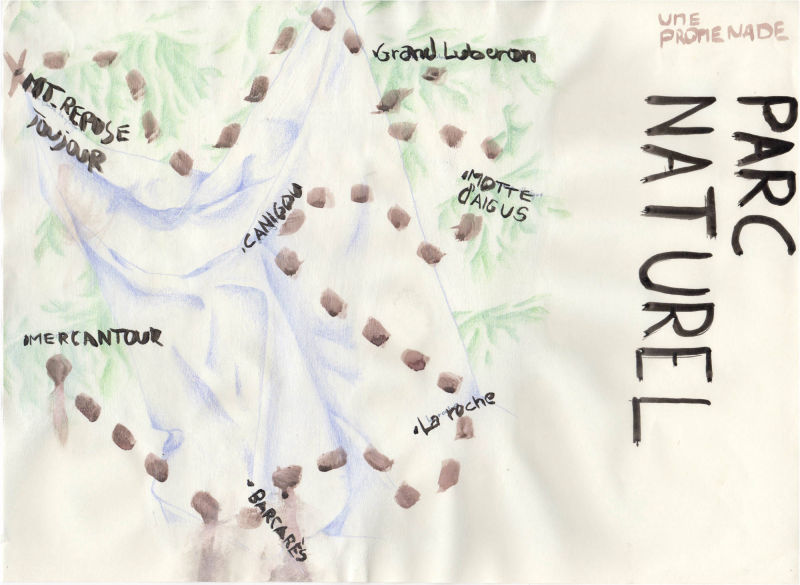 UNE
PROMENADE
PARC
NATUREL
Grand Luberon
MT. REPOSE
TOUJOUR
MOTTE
d'AIGUS
CANIGOU
MERCANTOUR
La roche
BARCARÈS